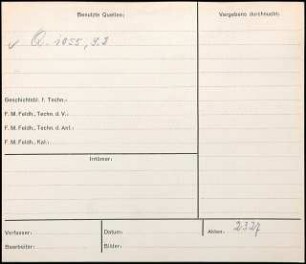 Benutzte Quellen:
Vergebens durchsucht:
v Q. 1055, 9.2
Geschichtsbl. f. Techn.:
F. M. Feldh., Techn. d. V.:
F. M. Feldh., Techn. d. Ant.:
F. M. Feldh., Kat.:
Irrtümer:
Verfasser:
Datum:
Akten: 2327
Bearbeiter:
Bilder: